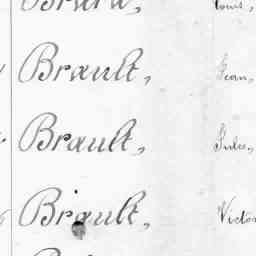 Brault, Jean,
Brault, Jules,
Brault, Victor